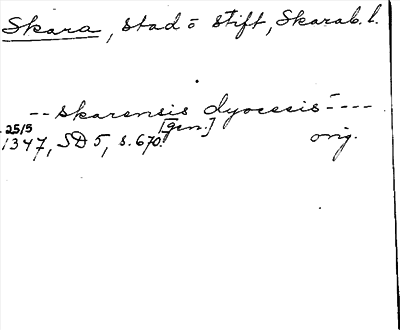 Skara, stad o stift, Skarab. l.
-- skarensis dyocesis ----
[gen.]
25/5
1347, SD 5, s. 670. orig.